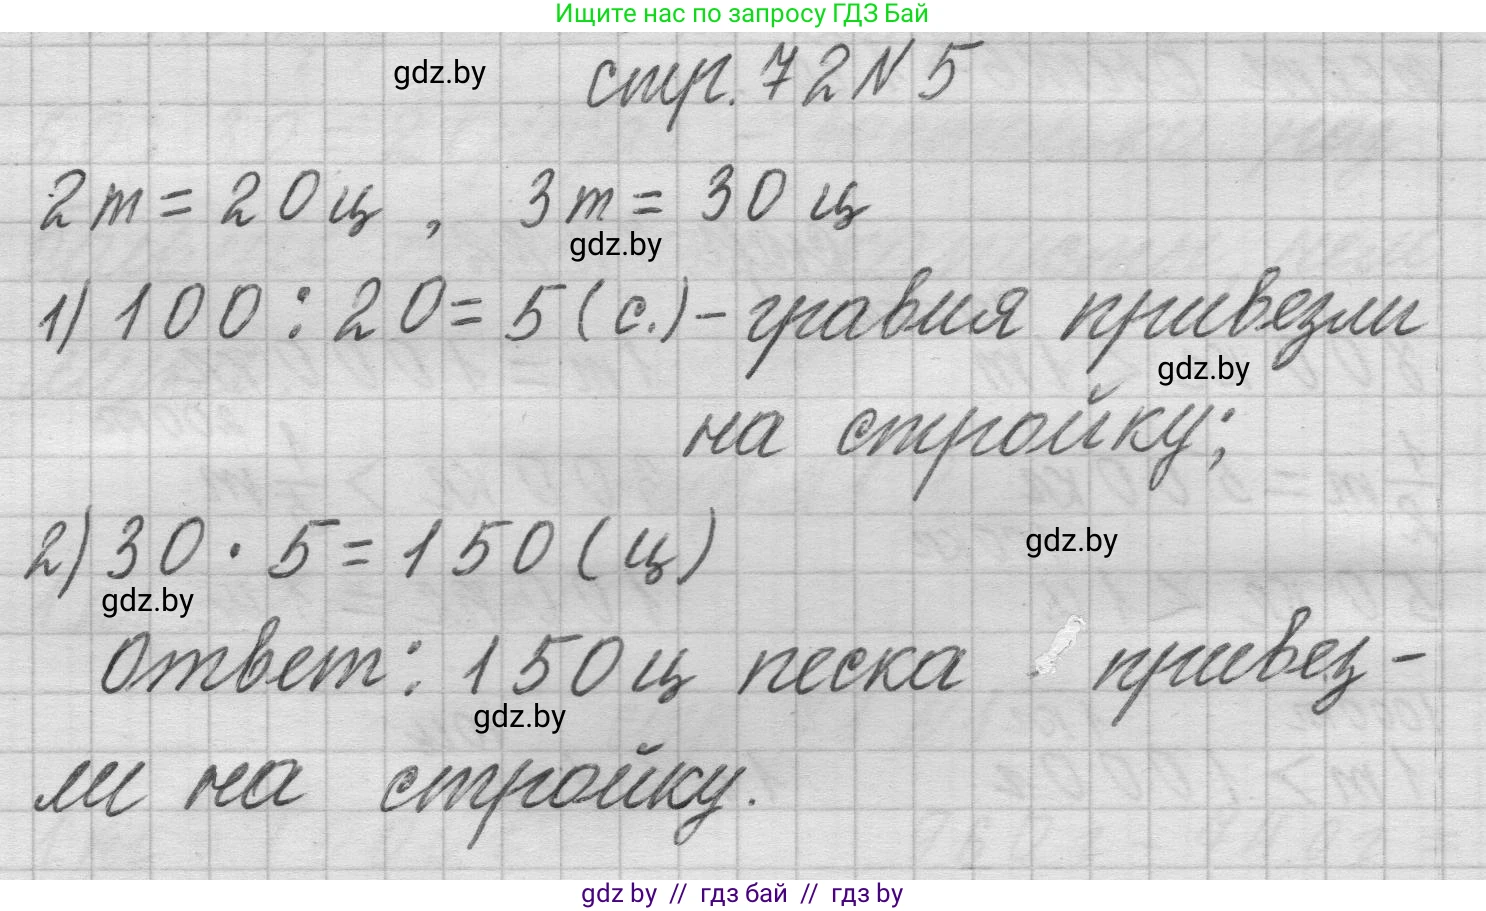 Ищите нас по запросу ГДЗ Бай
gdz.by
стр. 72 N 5
2 т = 20 ц , 3 т = 30 ц
gdz.by
1) 100 : 20 = 5 (с.) – гравия привезли
gdz.by
на стройку;
2) 30 · 5 = 150 (ц)
gdz.by
gdz.by
Ответ: 150 ц песка привез-
gdz.by
ли на стройку.
gdz by // гдз бай // гдз by